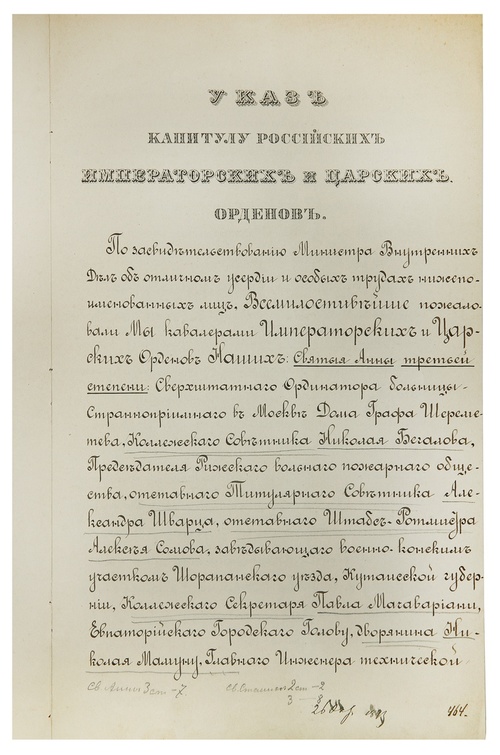 УКАЗЪ
КАПИТУЛУ РОССІЙСКИХЪ
ИМПЕРАТОРСКИХЪ и ЦАРСКИХЪ
ОРДЕНОВЪ.
По засвидѣтельствованію Министра Внутреннихъ
Дѣлъ объ отличномъ усердіи и особыхъ трудахъ нижепо-
именованныхъ лицъ, Всемилостивѣйше пожало-
вали Мы кавалерами Императорскихъ и Цар-
скихъ Орденовъ Нашихъ: Святыя Анны третьей
степени: Сверхштатнаго Ординатора больницы
Страннопріимнаго въ Москвѣ Дома Графа Шереме-
тева, Коллежскаго Совѣтника Николая Бегалова,
Предсѣдателя Рижскаго вольнаго пожарнаго обще-
ства, отставнаго Титулярнаго Совѣтника Але-
ксандра Шварца, отставнаго Штабсъ-Ротмистра
Алексѣя Сомова, завѣдывающаго военно-конскимъ
участкомъ Шорапанскаго уѣзда, Кутаисской губер-
ніи, Коллежскаго Секретаря Павла Мачаваріани,
Евпаторійскаго Городскаго Голову, дворянина Ни-
колая Мамуну, Главнаго Инженера технической
Св. Анны 3 ст - 7. Св. Станисл 2 ст - 2
3 -
26
464.